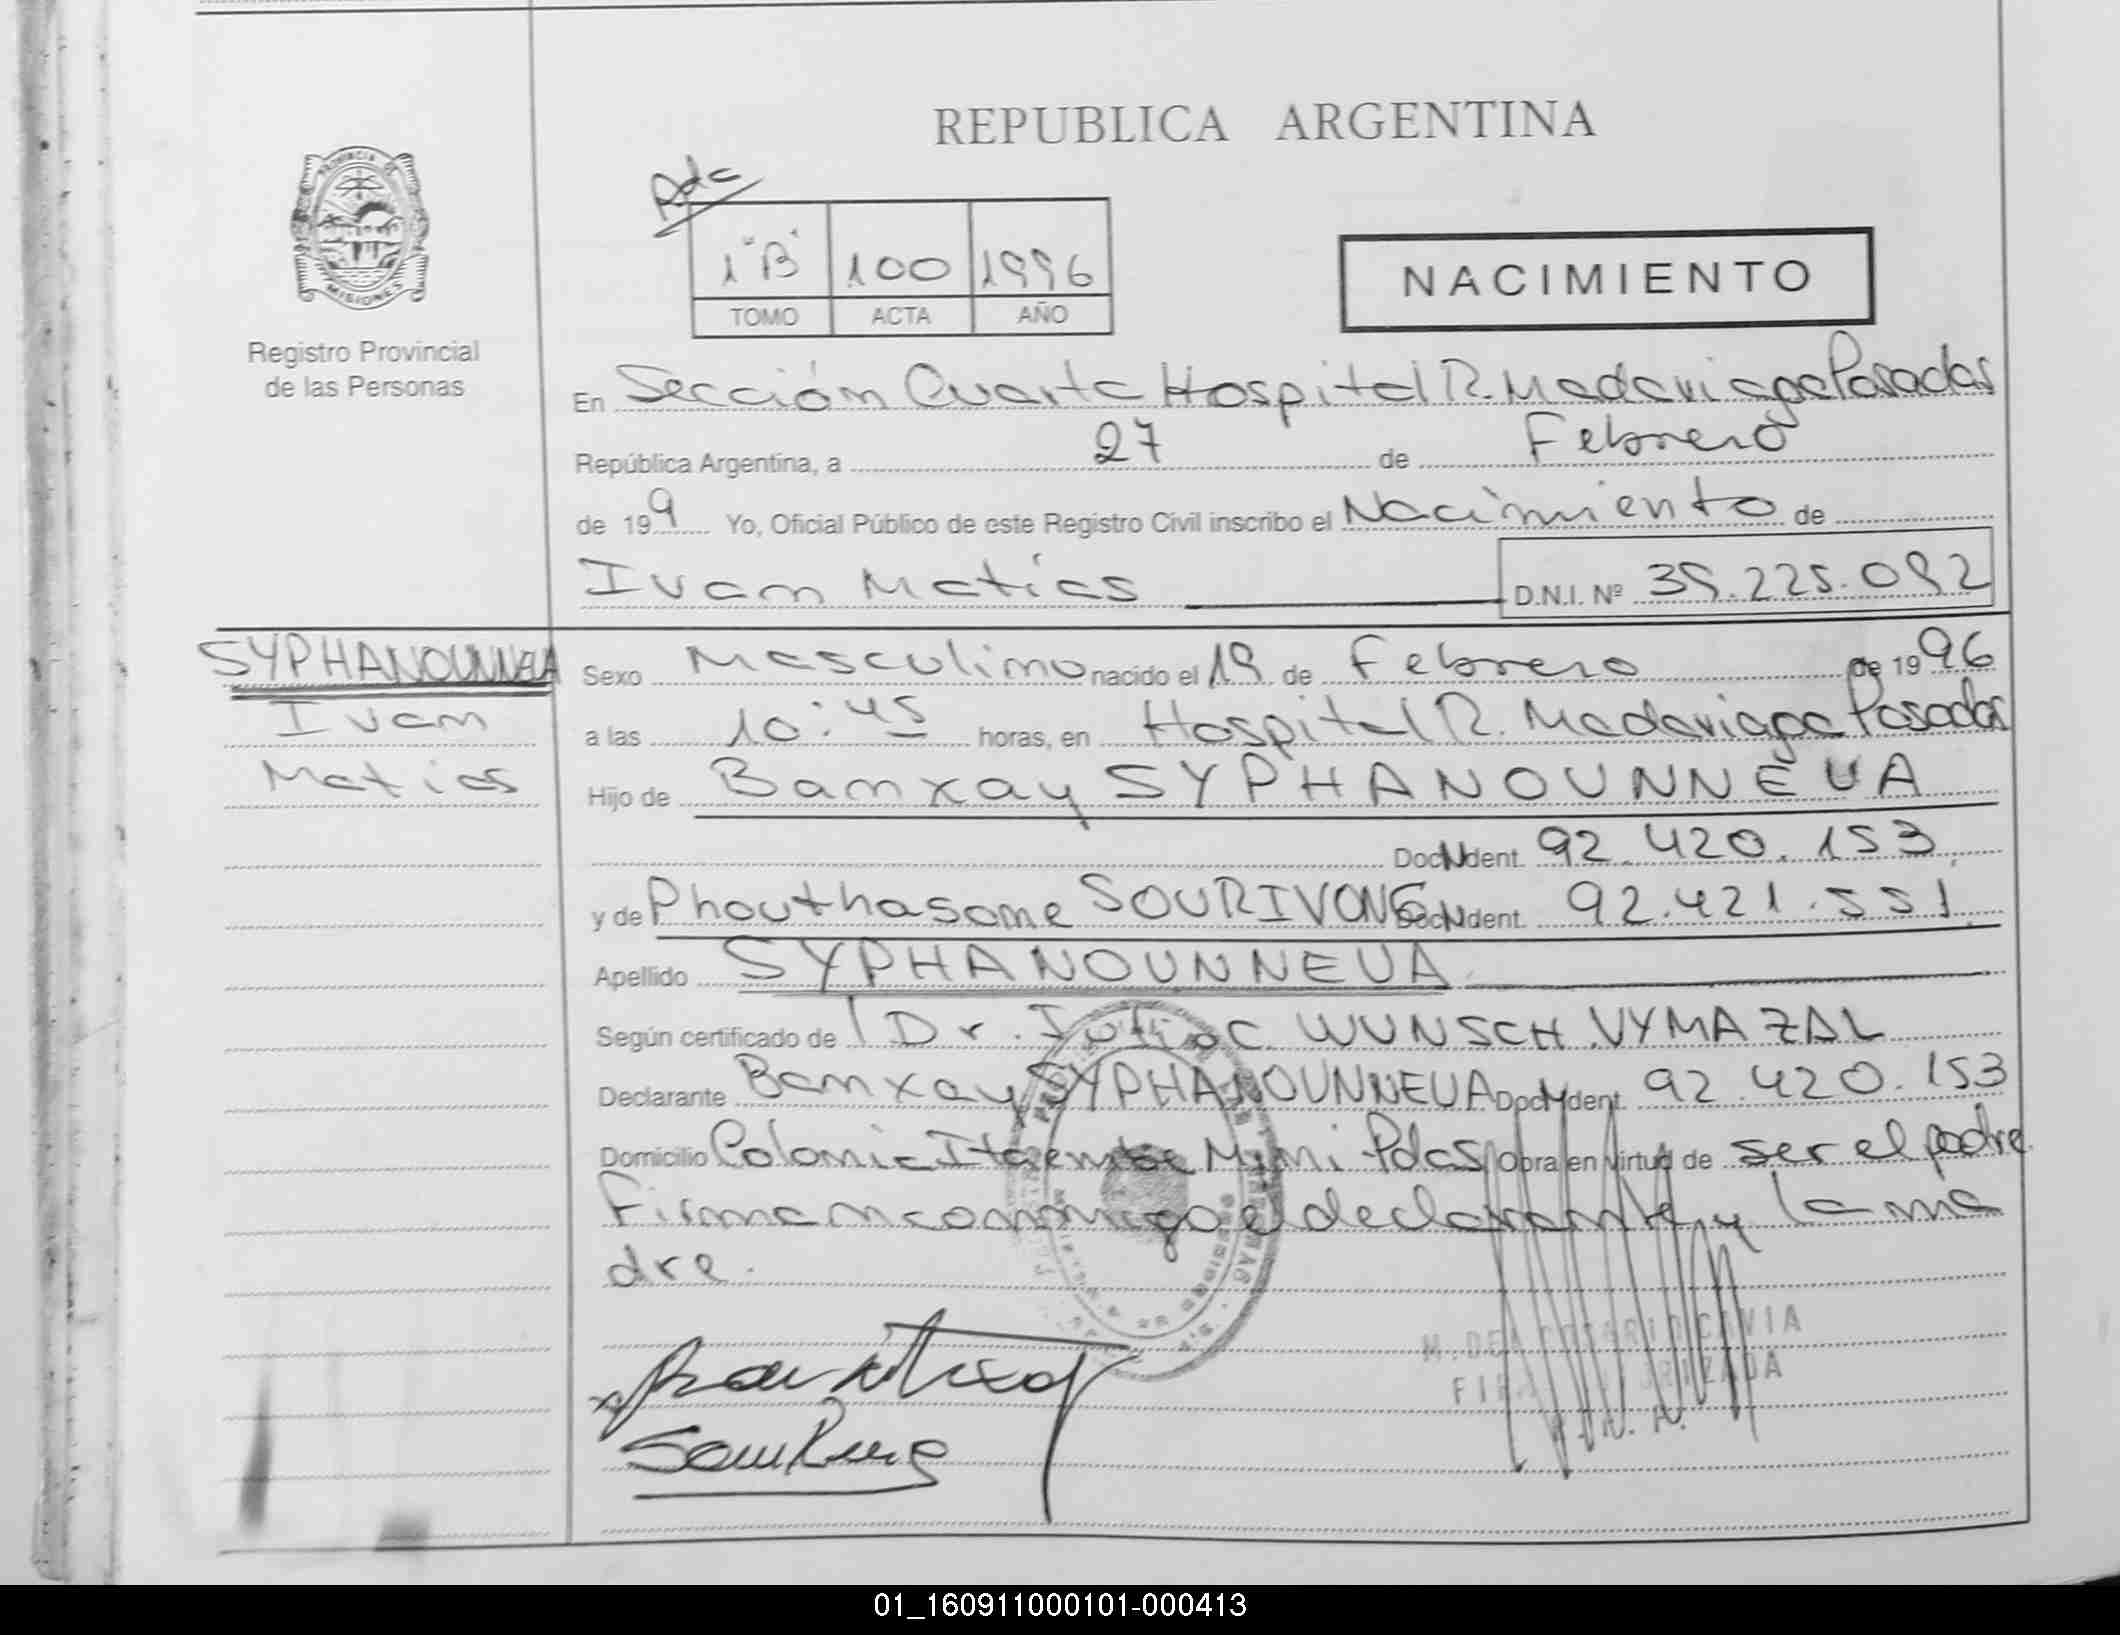 REPUBLICA ARGENTINA
Adc
1 "B" 100 1996
TOMO ACTA AÑO
NACIMIENTO
PROVINCIA DE
MISIONES
Registro Provincial
de las Personas
En Sección Cuarta Hospital R. Madariaga Posadas
República Argentina, a 27 de Febrero
de 199 Yo, Oficial Público de este Registro Civil inscribo el Nacimiento de
Ivan Matias D.N.I. Nº 39.225.092
SYPHANOUNNEUA
Ivan
Matias
Sexo Masculino nacido el 19 de Febrero de 1996
a las 10:45 horas, en Hospital R. Madariaga Posadas
Hijo de Banxay SYPHANOUNNEUA
Doc N Ident. 92.420.153
y de Phouthasone SOURIVONG Doc N Ident. 92.421.551
Apellido SYPHANOUNNEUA
Según certificado de Dr. Julio C. WUNSCH VYMAZAL
Declarante Banxay SYPHANOUNNEUA Doc N Ident. 92.420.153
Domicilio Colonia Itaembe Mini-Pdas Obra en virtud de ser el padre.
Firman conmigo el declarante y la ma
dre.
M. DEL ROSARIO CAVIA
FIRMA AUTORIZADA
01_160911000101-000413